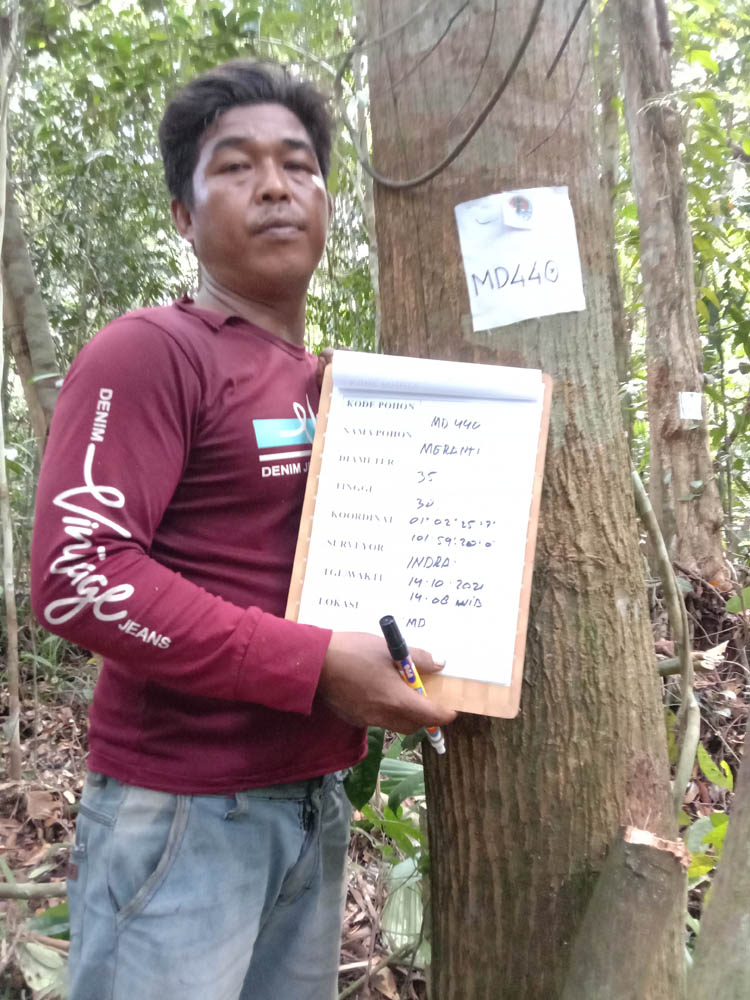 MD440
KODE POHON MD 440
NAMA POHON MERANTI
DIAMETER 35
TINGGI 30
KOORDINAT 01° 02' 25.2"
101° 59' 20.0"
SURVEYOR INDRA
TGL/WAKTU 14-10-2021
14.08 WIB
LOKASI MD
DENIM
Vintage
JEANS
DENIM J